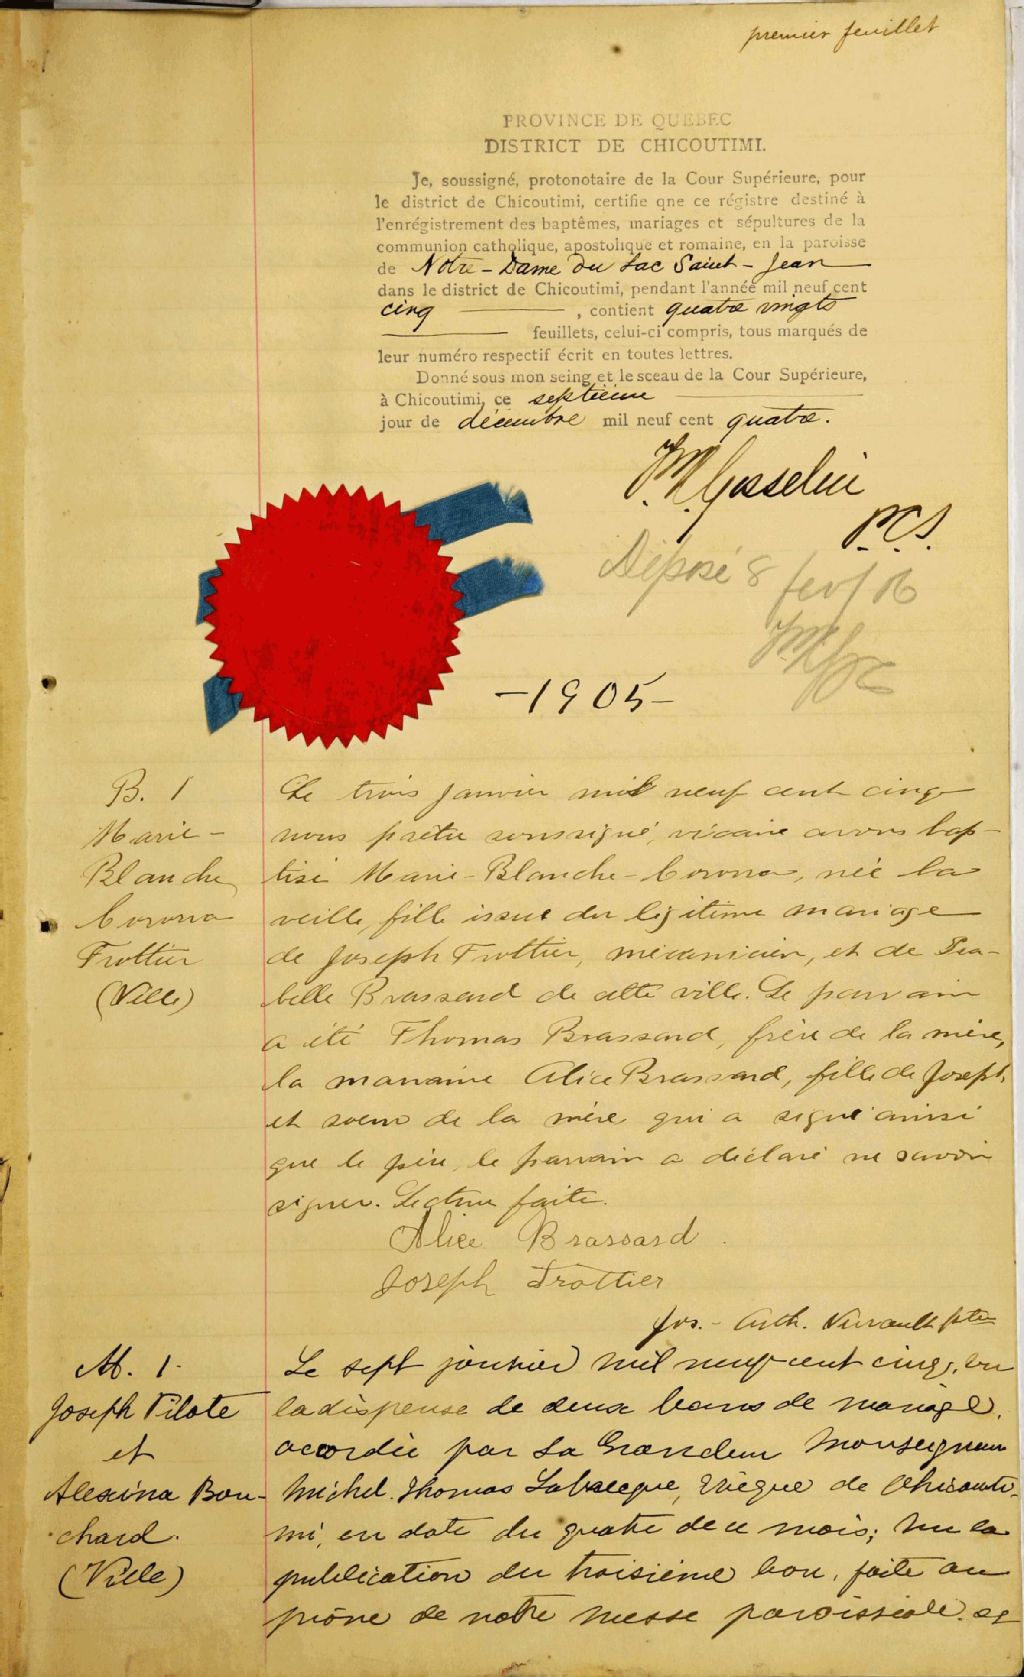 premier feuillet
PROVINCE DE QUEBEC
DISTRICT DE CHICOUTIMI.
Je, soussigné, protonotaire de la Cour Supérieure, pour
le district de Chicoutimi, certifie qne ce régistre destiné à
l'enrégistrement des baptêmes, mariages et sépultures de la
communion catholique, apostolique et romaine, en la paroisse
de Notre-Dame du Lac Saint-Jean
dans le district de Chicoutimi, pendant l'année mil neuf cent
cinq , contient quatre vingts
feuillets, celui-ci compris, tous marqués de
leur numéro respectif écrit en toutes lettres.
Donné sous mon seing et le sceau de la Cour Supérieure,
à Chicoutimi, ce septième
jour de décembre mil neuf cent quatre.
Gosselin
P.C.S.
Déposé 8 fev/06
-1905-
B. 1
Marie-
Blanche
Corona
Trottier
(Ville)
Le trois janvier mil neuf cent cinq
nous prêtre soussigné, vicaire avons bap-
tisé Marie-Blanche-Corona, née la
veille, fille issue du légitime mariage
de Joseph Trottier, mécanicien, et de Isa-
belle Brassard de cette ville. Le parrain
a été Thomas Brassard, frère de la mère,
la marraine Alice Brassard, fille de Joseph,
et soeur de la mère qui a signé ainsi
que le père, le parrain a déclaré ne savoir
signer. Lecture faite.
Alice Brassard
Joseph Trottier
Jos.-Arth. Verrault ptre
M. 1.
Joseph Pilote
et
Alexina Bou-
chard.
(Ville)
Le sept janvier mil neuf cent cinq, vu
la dispense de deux bans de mariage,
accordée par Sa Grandeur Monseigneur
Michel Thomas Labrecque, Evêque de Chicouti-
mi, en date du quatre de ce mois; vu la
publication du troisième ban, faite au
prône de notre messe paroissiale, et